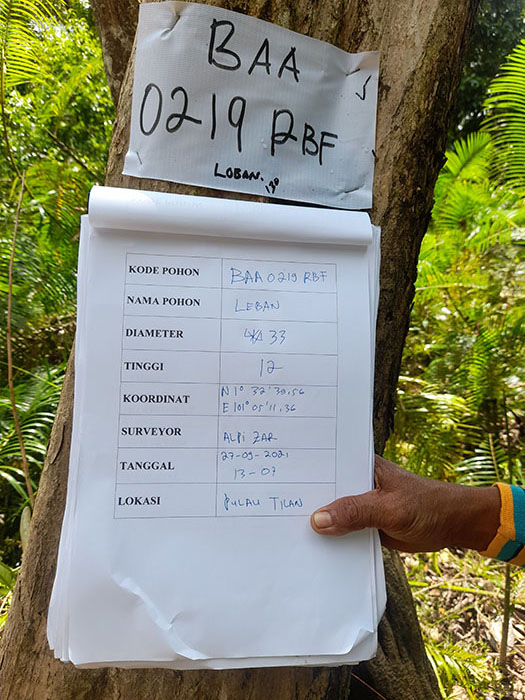 BAA
0219 RBF
LOBAN.
KODE POHON BAA 0219 RBF
NAMA POHON LEBAN
DIAMETER 33
TINGGI 12
KOORDINAT N 1° 32' 39,56
E 101° 05' 11,36
SURVEYOR ALPI ZAR
TANGGAL 27-09-2021
13-07
LOKASI PULAU TILAN